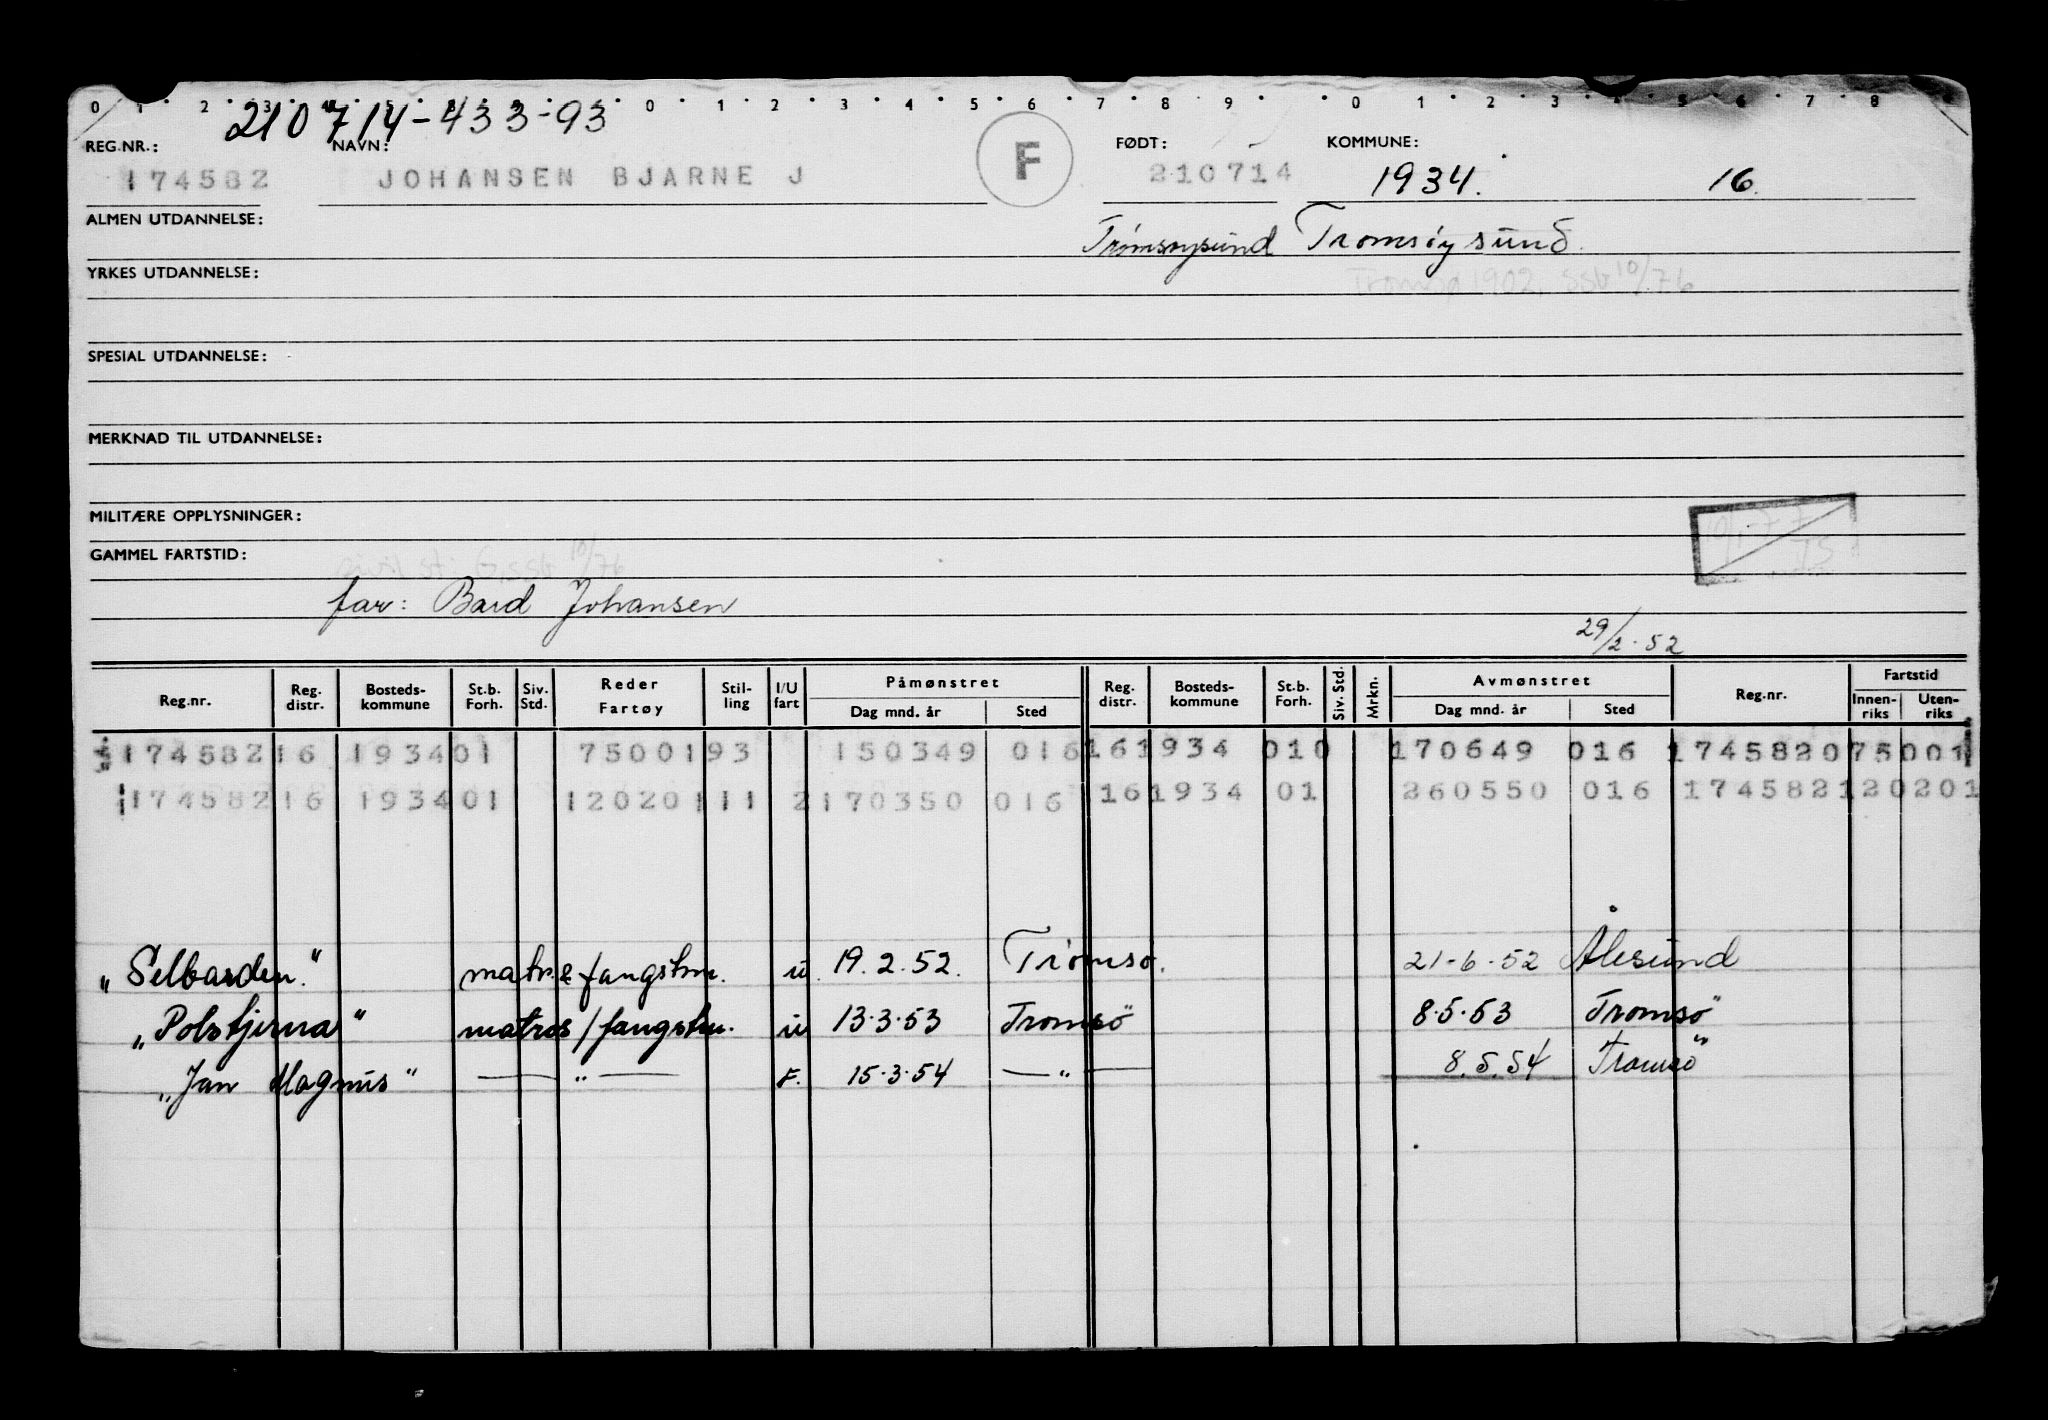 0 1 2 3 4 5 8 9 0 1 2 3 4 5 6 7 8 9 0 1 2 3 4 5 6 7 8
210714-433-93
REG.NR.: NAVN: FØDT: KOMMUNE:
174582 JOHANSEN BJARNE J F 210714 1934. 16.
ALMEN UTDANNELSE: Tromsøysund Tromsöysund.
YRKES UTDANNELSE: Tromsø 1902, SSB 10/76
SPESIAL UTDANNELSE:
MERKNAD TIL UTDANNELSE:
MILITÆRE OPPLYSNINGER:
GAMMEL FARTSTID: sivil st: G, SSB 10/76
far: Bard Johansen
29/2-52
Reg.nr. Reg. distr. Bosteds-kommune St.b. Forh. Siv. Std. Reder Fartøy Stil-ling I/U fart Påmønstret Dag mnd. år Sted Reg. distr. Bosteds-kommune St.b. Forh. Siv. Std. Mrkn. Avmønstret Dag mnd. år Sted Reg.nr. Fartstid Innen-riks Uten-riks
174582 16 1934 01 75001 93 150349 016 16 1934 010 170649 016 174582075001
174582 16 1934 01 120201 11 2 170350 016 16 1934 01 260550 016 1745821 20201
"Selbarden" matr. & fangstm. u. 19.2.52. Tromsø. 21-6-52 Ålesund
"Polstjerna" matros/fangstm. u 13.3.53 Tromsö 8.5.53 Tromsö
"Jan Magnus" — " — F. 15.3.54 — " — 8.5.54 Tromsö